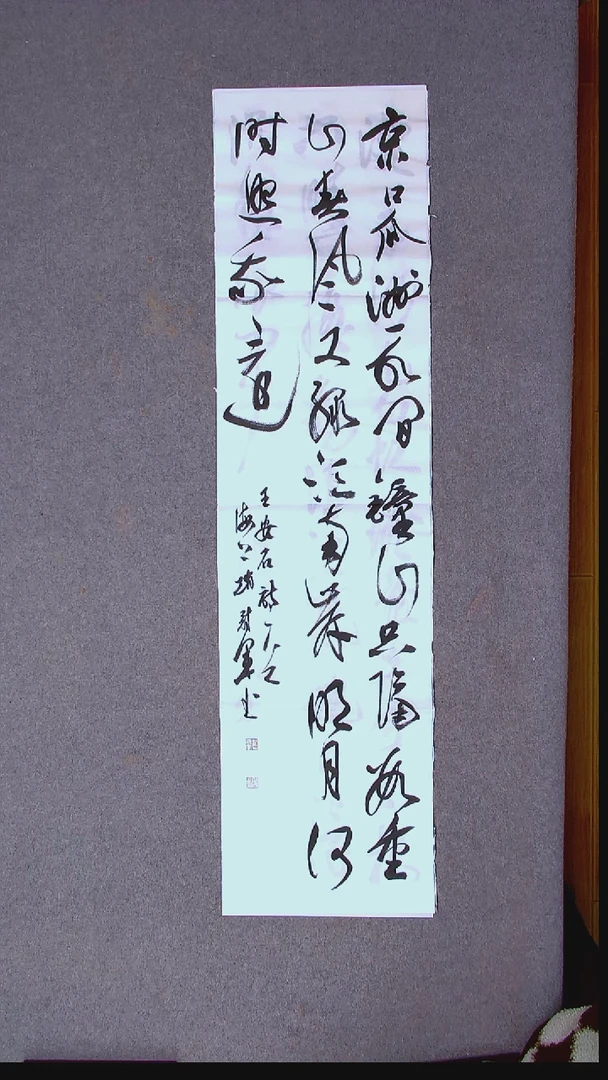 京口瓜洲一水间鐘山只隔数重
山春风又绿江南岸明月何
时照我還
王安石詩一首
海上